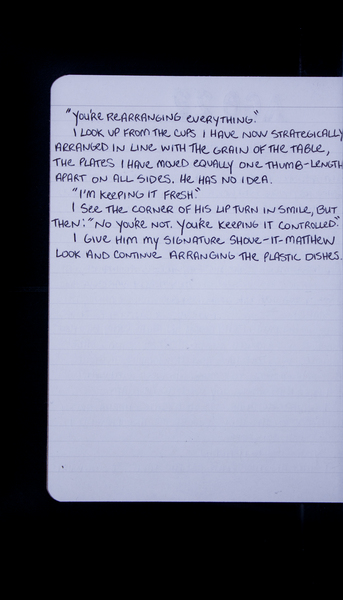 "You're rearranging everything."
I look up from the cups I have now strategically
arranged in line with the grain of the table,
the plates I have moved equally one thumb-length
apart on all sides. He has no idea.
"I'm keeping it fresh."
I see the corner of his lip turn in smile, but
then: "No you're not. You're keeping it controlled."
I give him my signature shove-it-Matthew
look and continue arranging the plastic dishes.